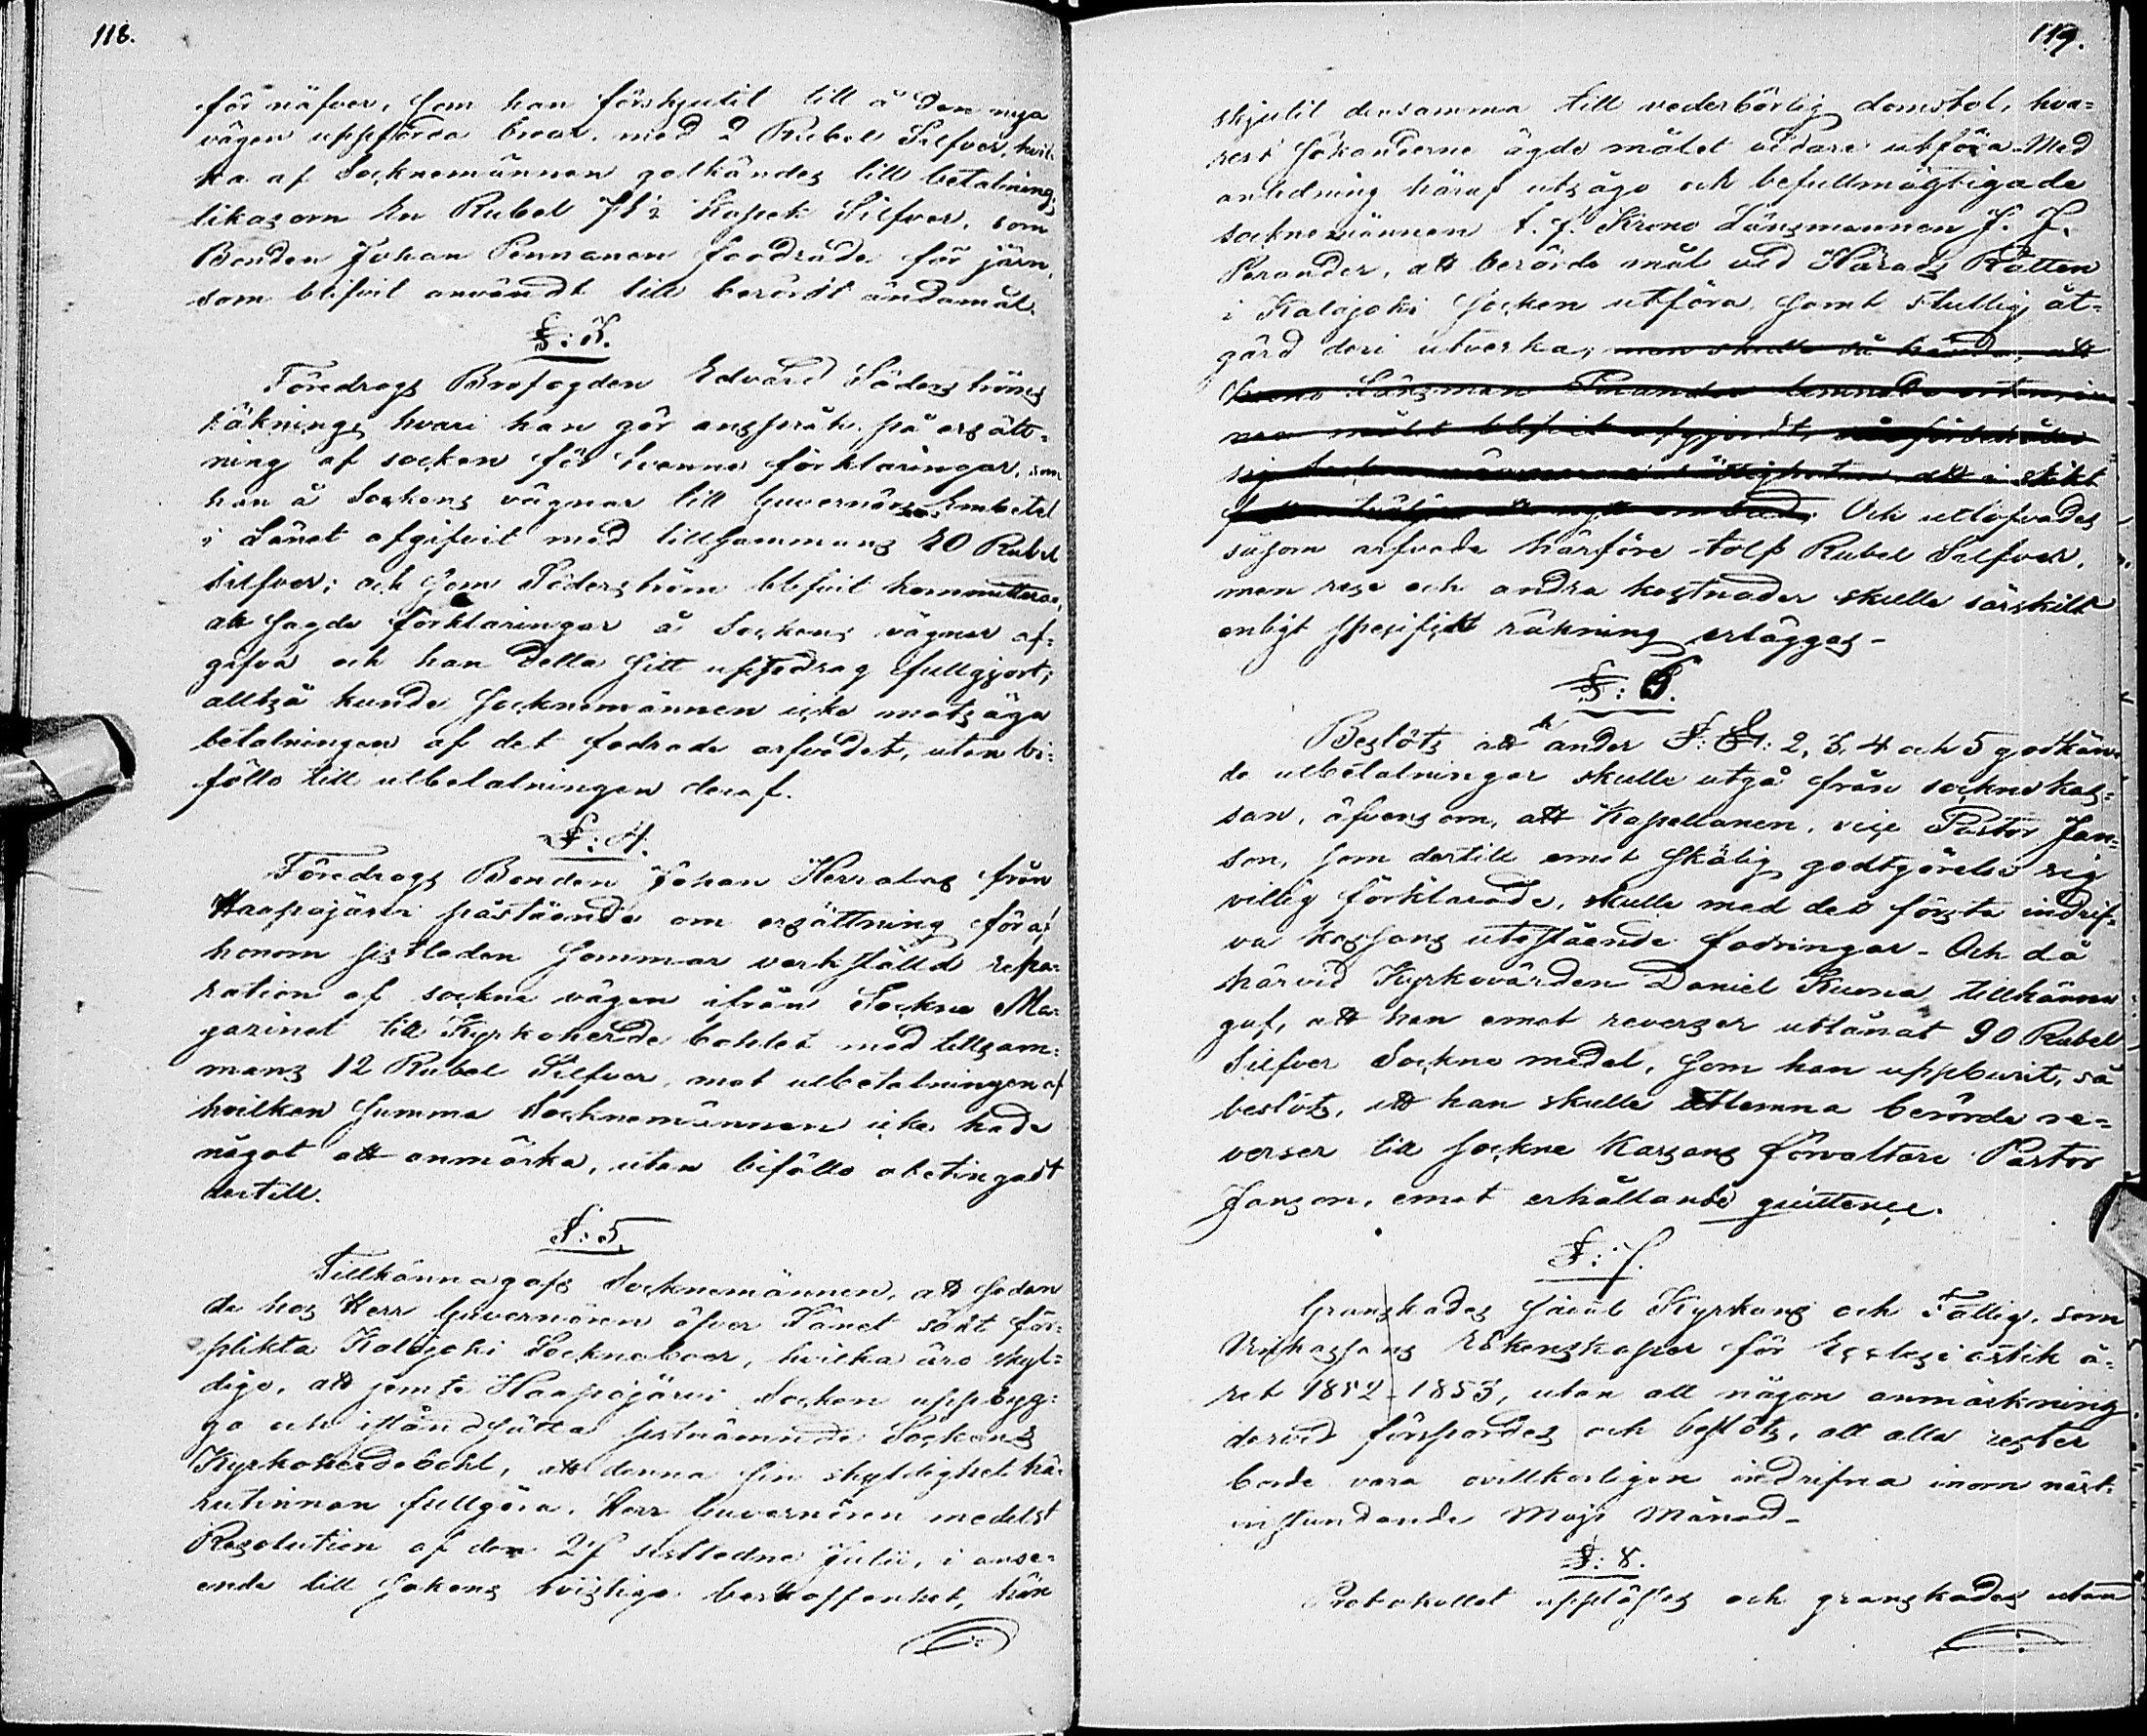 118.
för näfver, som han förskjutit till å den nya
vägen uppförda broar, med 2 Rubel Silfver, hvil-
ka af Socknemännen godkändes till betalning,
likasom en Rubel 71½ Kopek Silfver, som
Bonden Johan Pennanen fordrade för järn,
som blifvit användt till berördt ändamål.
§: 3.
Föredrogs Brofogden Edvard Söderströms
räkning, hvari han gör anspråk på ersätt-
ning af socken för tvenne förklaringar, som
han å Sockens vägnar till Guvernörs Embetet
i Länet afgifvit med tillsammans 20 Rubel
Silfver; och som Söderström blifvit kommitterad,
att sagde förklaringar å Sockens vägnar af-
gifva och han detta sitt uppdrag fullgjort;
alltså kunde Socknemännen icke motsäga
betalningen af det fodrade arfvodet, utan bi-
föllo till utbetalningen deraf.
§: 4.
Föredrogs Bonden Johan Herralas från
Haapajärvi påstående om ersättning för af
honom sistleden sommar verkställd repa-
ration af sockne vägen ifrån Sockne Ma-
gazinet till Kyrkoherde bohlet med tillsam-
mans 12 Rubel Silfver, mot utbetalningen af
hvilken summa Socknemännen icke hade
något att anmärka, utan biföllo obetingadt
dertill.
§: 5.
Tillkännagafs Socknemännen, att sedan
de hos Herr Guvernören öfver Länet sökt för-
plikta Kalajoki Sockneboer, hvilka äro skyl-
dige, att jemte Haapajärvi Socken uppbyg-
ga och iståndsätta sistnämnde Sockens
Kyrkoherdebohl, att denna sin skyldighet hä-
rutinnan fullgöra, Herr Guvernören medelst
Resolution af den 27 sistledne Julii, i anse-
ende till Sakens tvistige beskaffenhet, hän
119.
skjutit densamma till vederbörlig domstol, hva-
rest Sökanderne ägde målet vidare utföra. Med
anledning häraf utsågo och befullmägtigade
socknemännen t. f. Krono Länsmannen J. J.
Perander, att berörde mål vid Härads Rätten
i Kalajoki Socken utföra samt slutlig åt-
gärd deri utverka; men skulle så hända, att
Krono Länsman Perander lemnade orten, in-
nan målet blifvit afgjordt,
sig Socknemännerne rättigheten, att i slikt
Och utlofvades
såsom arfvode härföre tolf Rubel Silfver,
men rese och andra kostnader skulle särskildt
enligt specificitt räkning erläggas.
§: 6.
Beslöts att de under §: §: 2, 3, 4 och 5 godkän-
de utbetalningar skulle utgå från sockne kas-
san, äfvensom, att Kapellanen, vice Pastor Jan-
son, som dertill emot skälig godtgörelse sig
villig förklarade, skulle med det första indrif-
va kassans utestående fodringar. Och då
härvid Kyrkovärden Daniel Kuona tillkänna
gaf, att han emot reverser utlånat 90 Rubel
Silfver Sockne medel, som han uppburit, så
beslöts, att han skulle utlemna berörde re-
verser till sockne Kassans förvaltare Pastor
Janson, emot erhållande quittence.
§: 7.
Granskades såväl Kyrkans och Fattig, som
Vinkassans Räkenskaper för Ecclesiastik å-
ret 1852-1853, utan att någon anmärkning
dervid försporde och beslöts, att alla rester
borde vara ovillkorligen indrifna inom näst-
instundande Maji Månad.
§: 8.
Protokollet upplästes och granskades utan